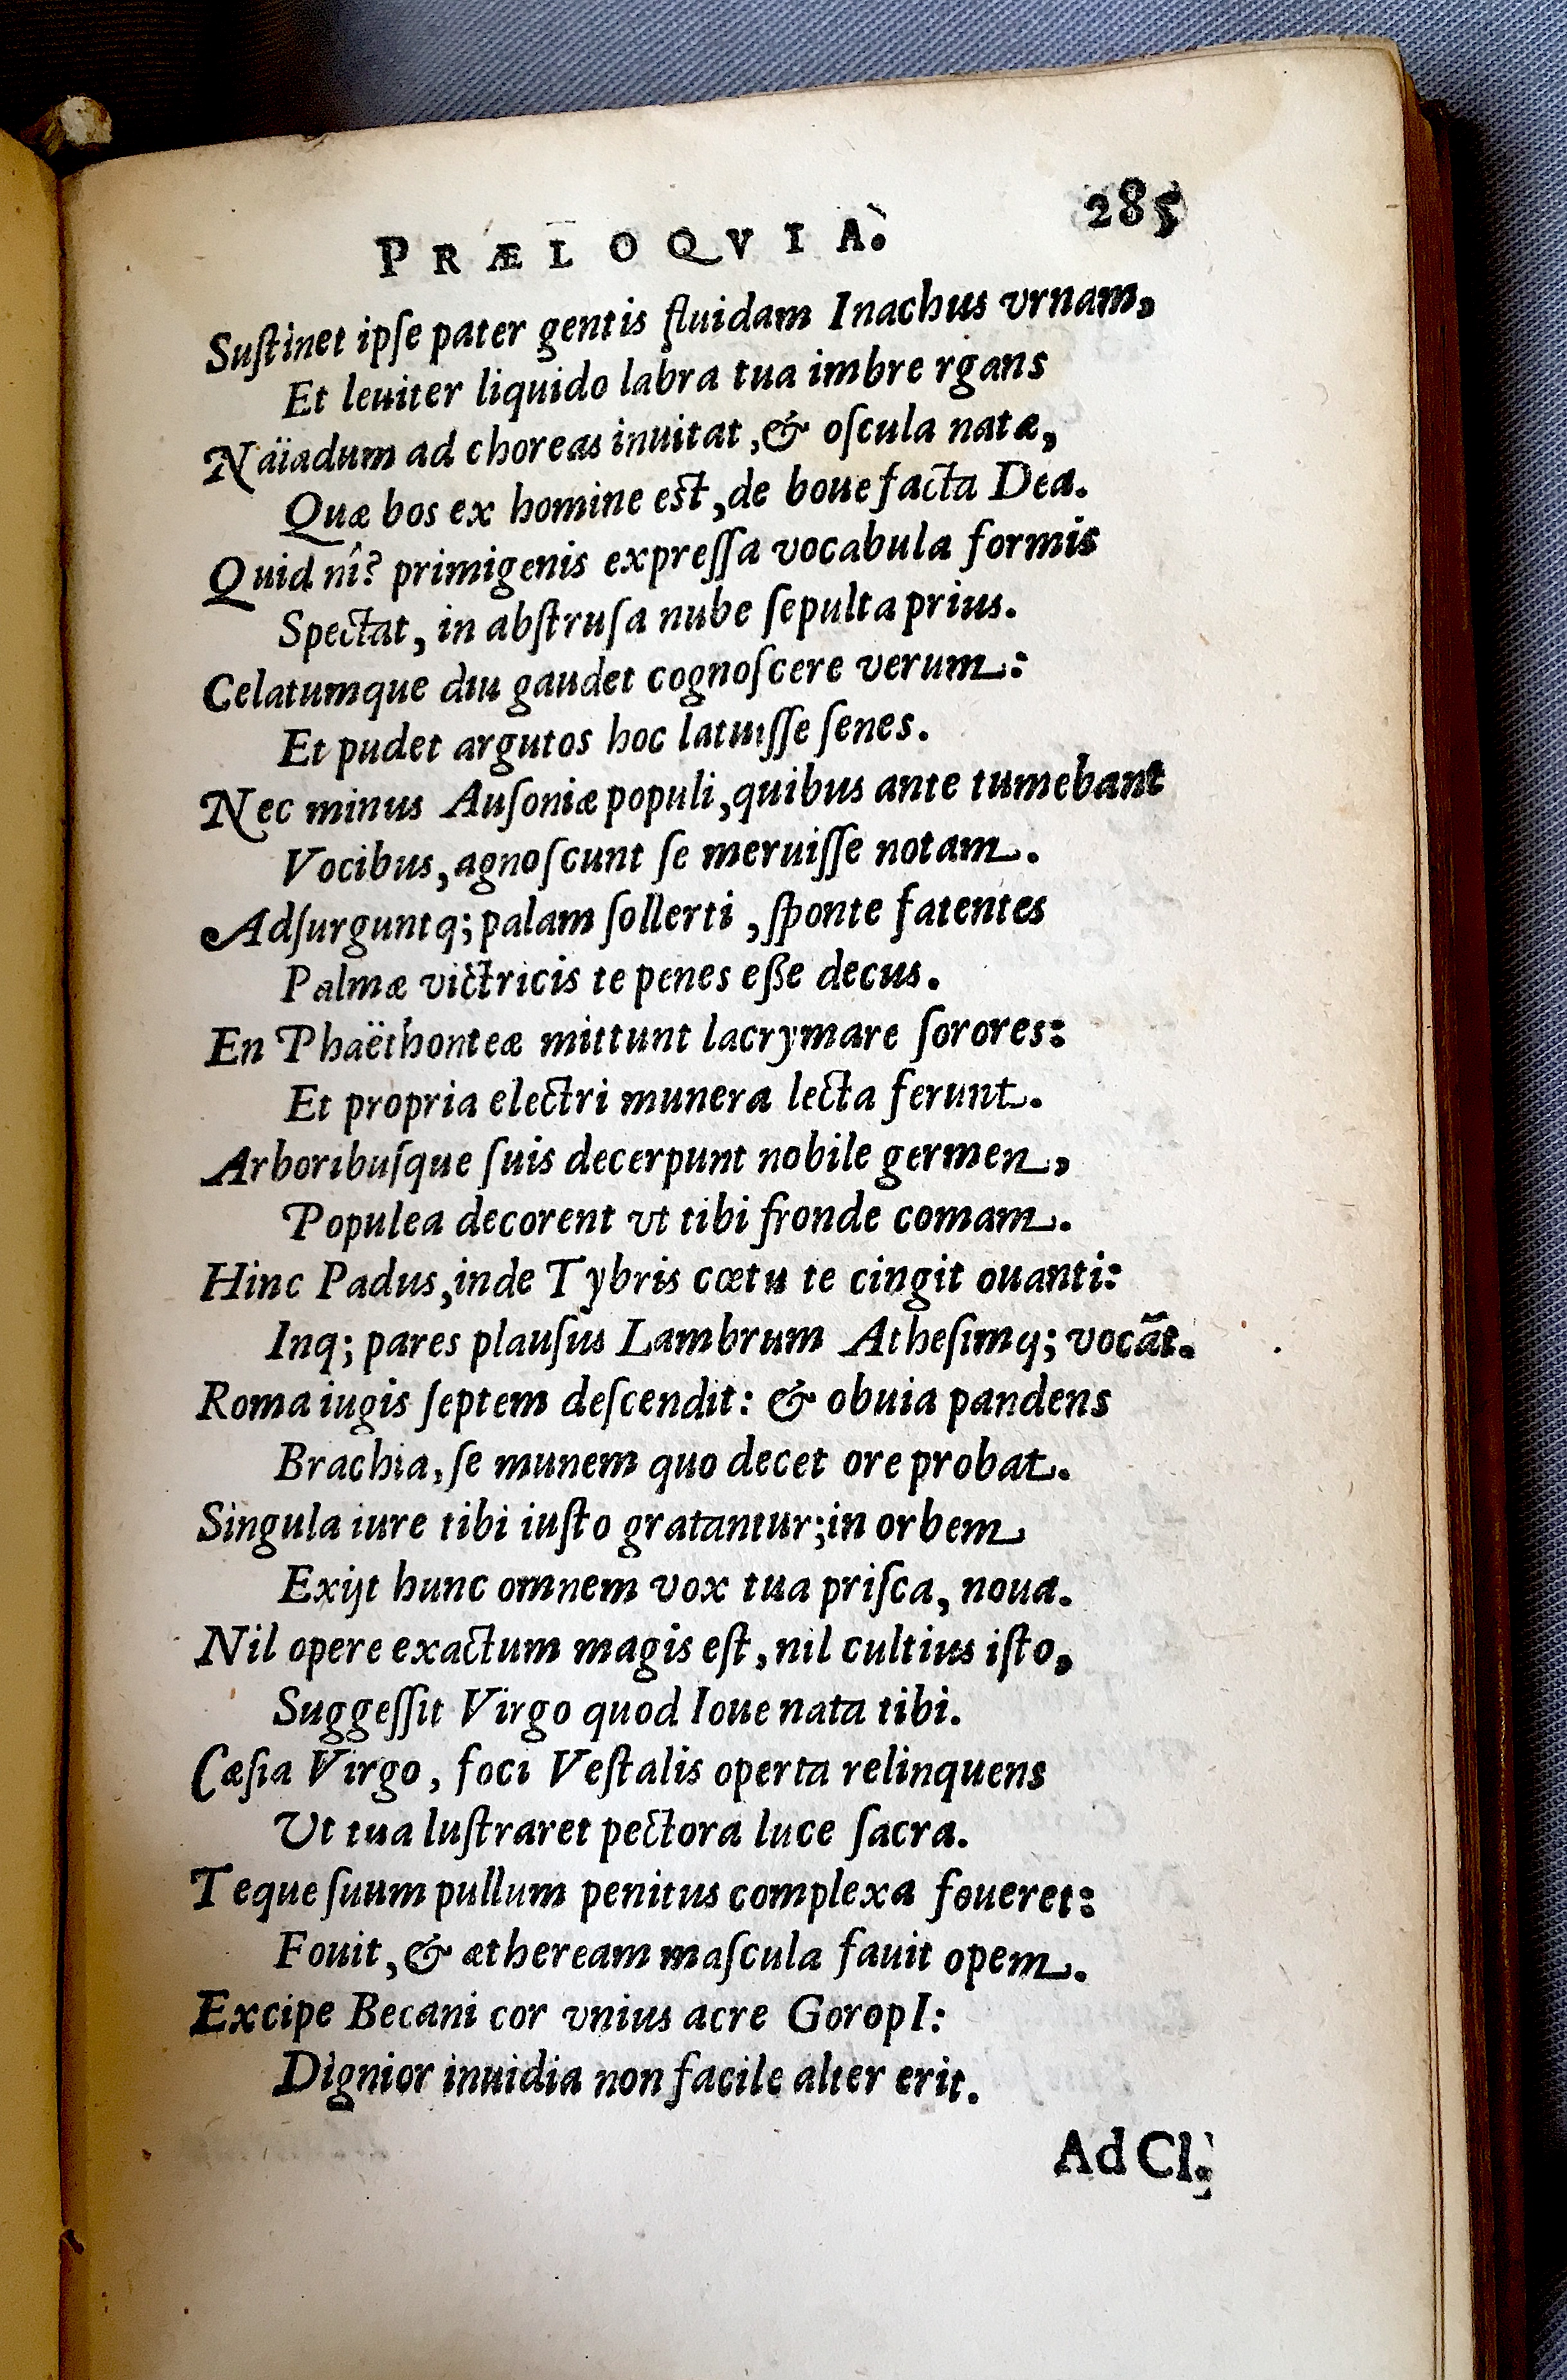 PRÆLOQVIA. 285
Suſtinet ipſe pater gentis fluidam Inachus vrnam,
Et leuiter liquido labra tua imbre rgans
Näiadum ad choreas inuitat, & oſcula natæ,
Quæ bos ex homine est, de boue facta Dea.
Quid nî? primigenis expreſſa vocabula formis
Spectat, in abſtruſa nube ſepulta prius.
Celatumque diu gaudet cognoſcere verum:
Et pudet argutos hoc latuiſſe ſenes.
Nec minus Auſoniæ populi, quibus ante tumebant
Vocibus, agnoſcunt ſe meruiſſe notam.
Adſurguntq; palam ſollerti, ſponte fatentes
Palmæ victricis te penes eße decus.
En Phaëthonteæ mittunt lacrymare ſorores:
Et propria electri munera lecta ferunt.
Arboribuſque ſuis decerpunt nobile germen,
Populea decorent vt tibi fronde comam.
Hinc Padus, inde Tybris cœtu te cingit ouanti:
Inq; pares plauſus Lambrum Atheſimq; vocãt.
Roma iugis ſeptem deſcendit: & obuia pandens
Brachia, ſe munem quo decet ore probat.
Singula iure tibi iuſto gratantur; in orbem
Exijt hunc omnem vox tua priſca, noua.
Nil opere exactum magis eſt, nil cultius iſto,
Suggeſſit Virgo quod Ioue nata tibi.
Cæſia Virgo, foci Veſtalis operta relinquens
Ut tua luſtraret pectora luce ſacra.
Teque ſuum pullum penitus complexa foueret:
Fouit, & ætheream maſcula fauit opem.
Excipe Becani cor vnius acre GoropI:
Dignior inuidia non facile alter erit.
Ad Cl.